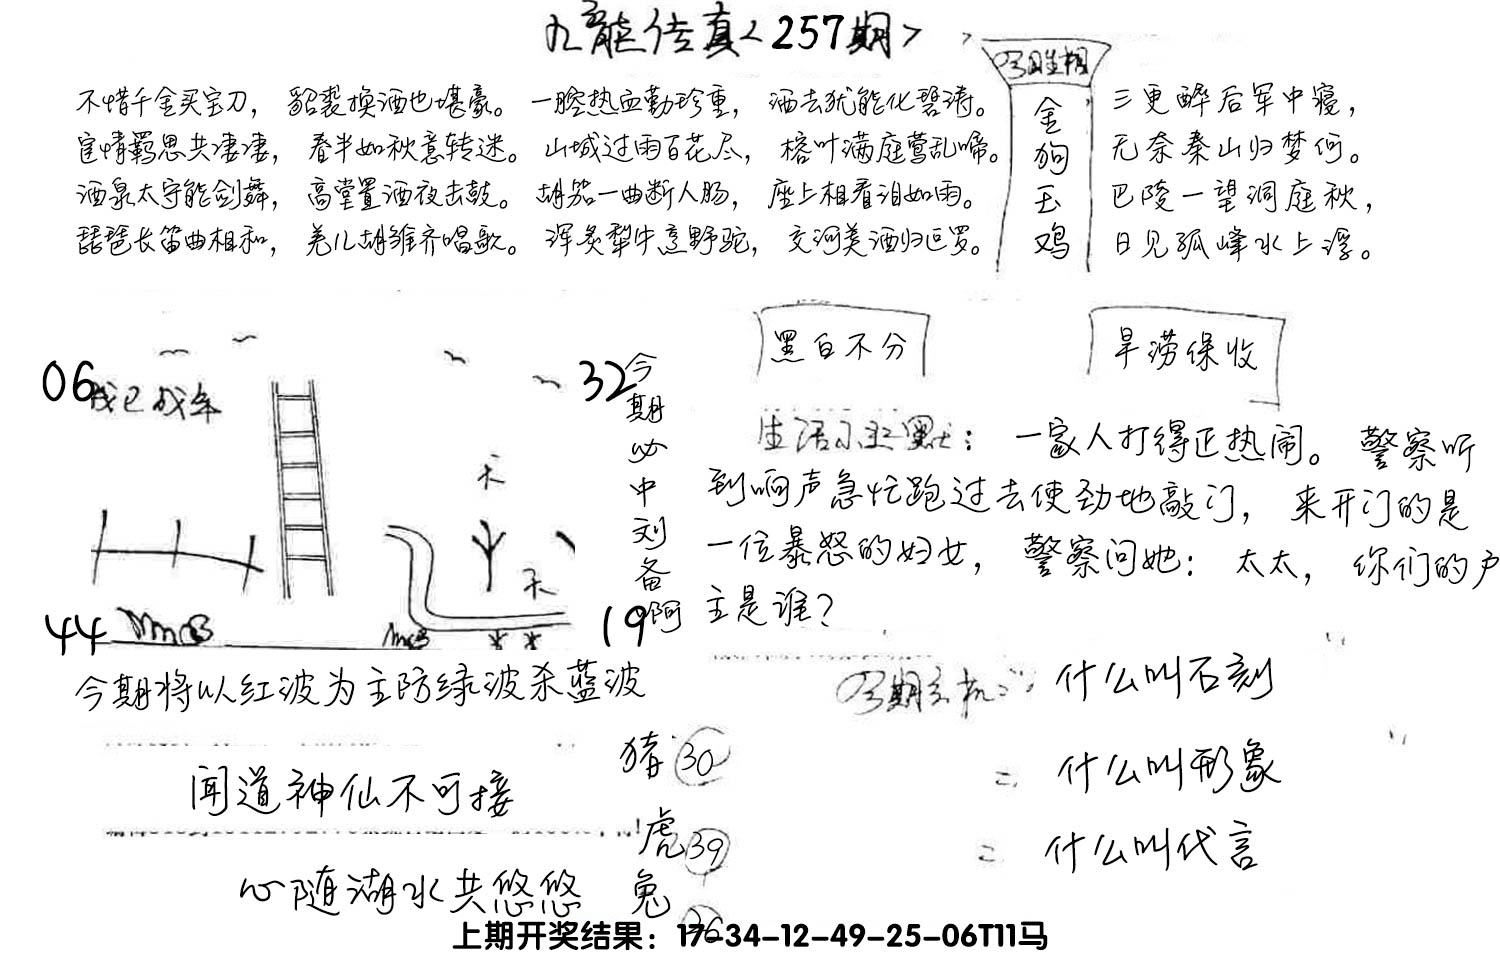 九龙传真<257期>
不惜千金买宝刀，貂裘换酒也堪豪。一腔热血勤珍重，洒去犹能化碧涛。
宦情羁思共凄凄，春半如秋意转迷。山城过雨百花尽，榕叶满庭莺乱啼。
酒泉太守能剑舞，高堂置酒夜击鼓。胡笳一曲断人肠，座上相看泪如雨。
琵琶长笛曲相和，羌儿胡雏齐唱歌。浑炙犁牛烹野驼，交河美酒归叵罗。
今日生相
金狗玉鸡
三更醉后军中寝，
无奈秦山归梦何。
巴陵一望洞庭秋，
日见孤峰水上浮。
黑白不分
旱涝保收
06
32
44
19
天
天
今期必中刘备啊
生活小幽默：一家人打得正热闹。警察听
到响声急忙跑过去使劲地敲门，来开门的是
一位暴怒的妇女，警察问她：太太，你们的户
主是谁？
今期将以红波为主防绿波杀蓝波
今期玄机
什么叫石刻
什么叫形象
什么叫代言
闻道神仙不可接
心随湖水共悠悠
猪 30
虎 39
兔 36
上期开奖结果：17-34-12-49-25-06T11马